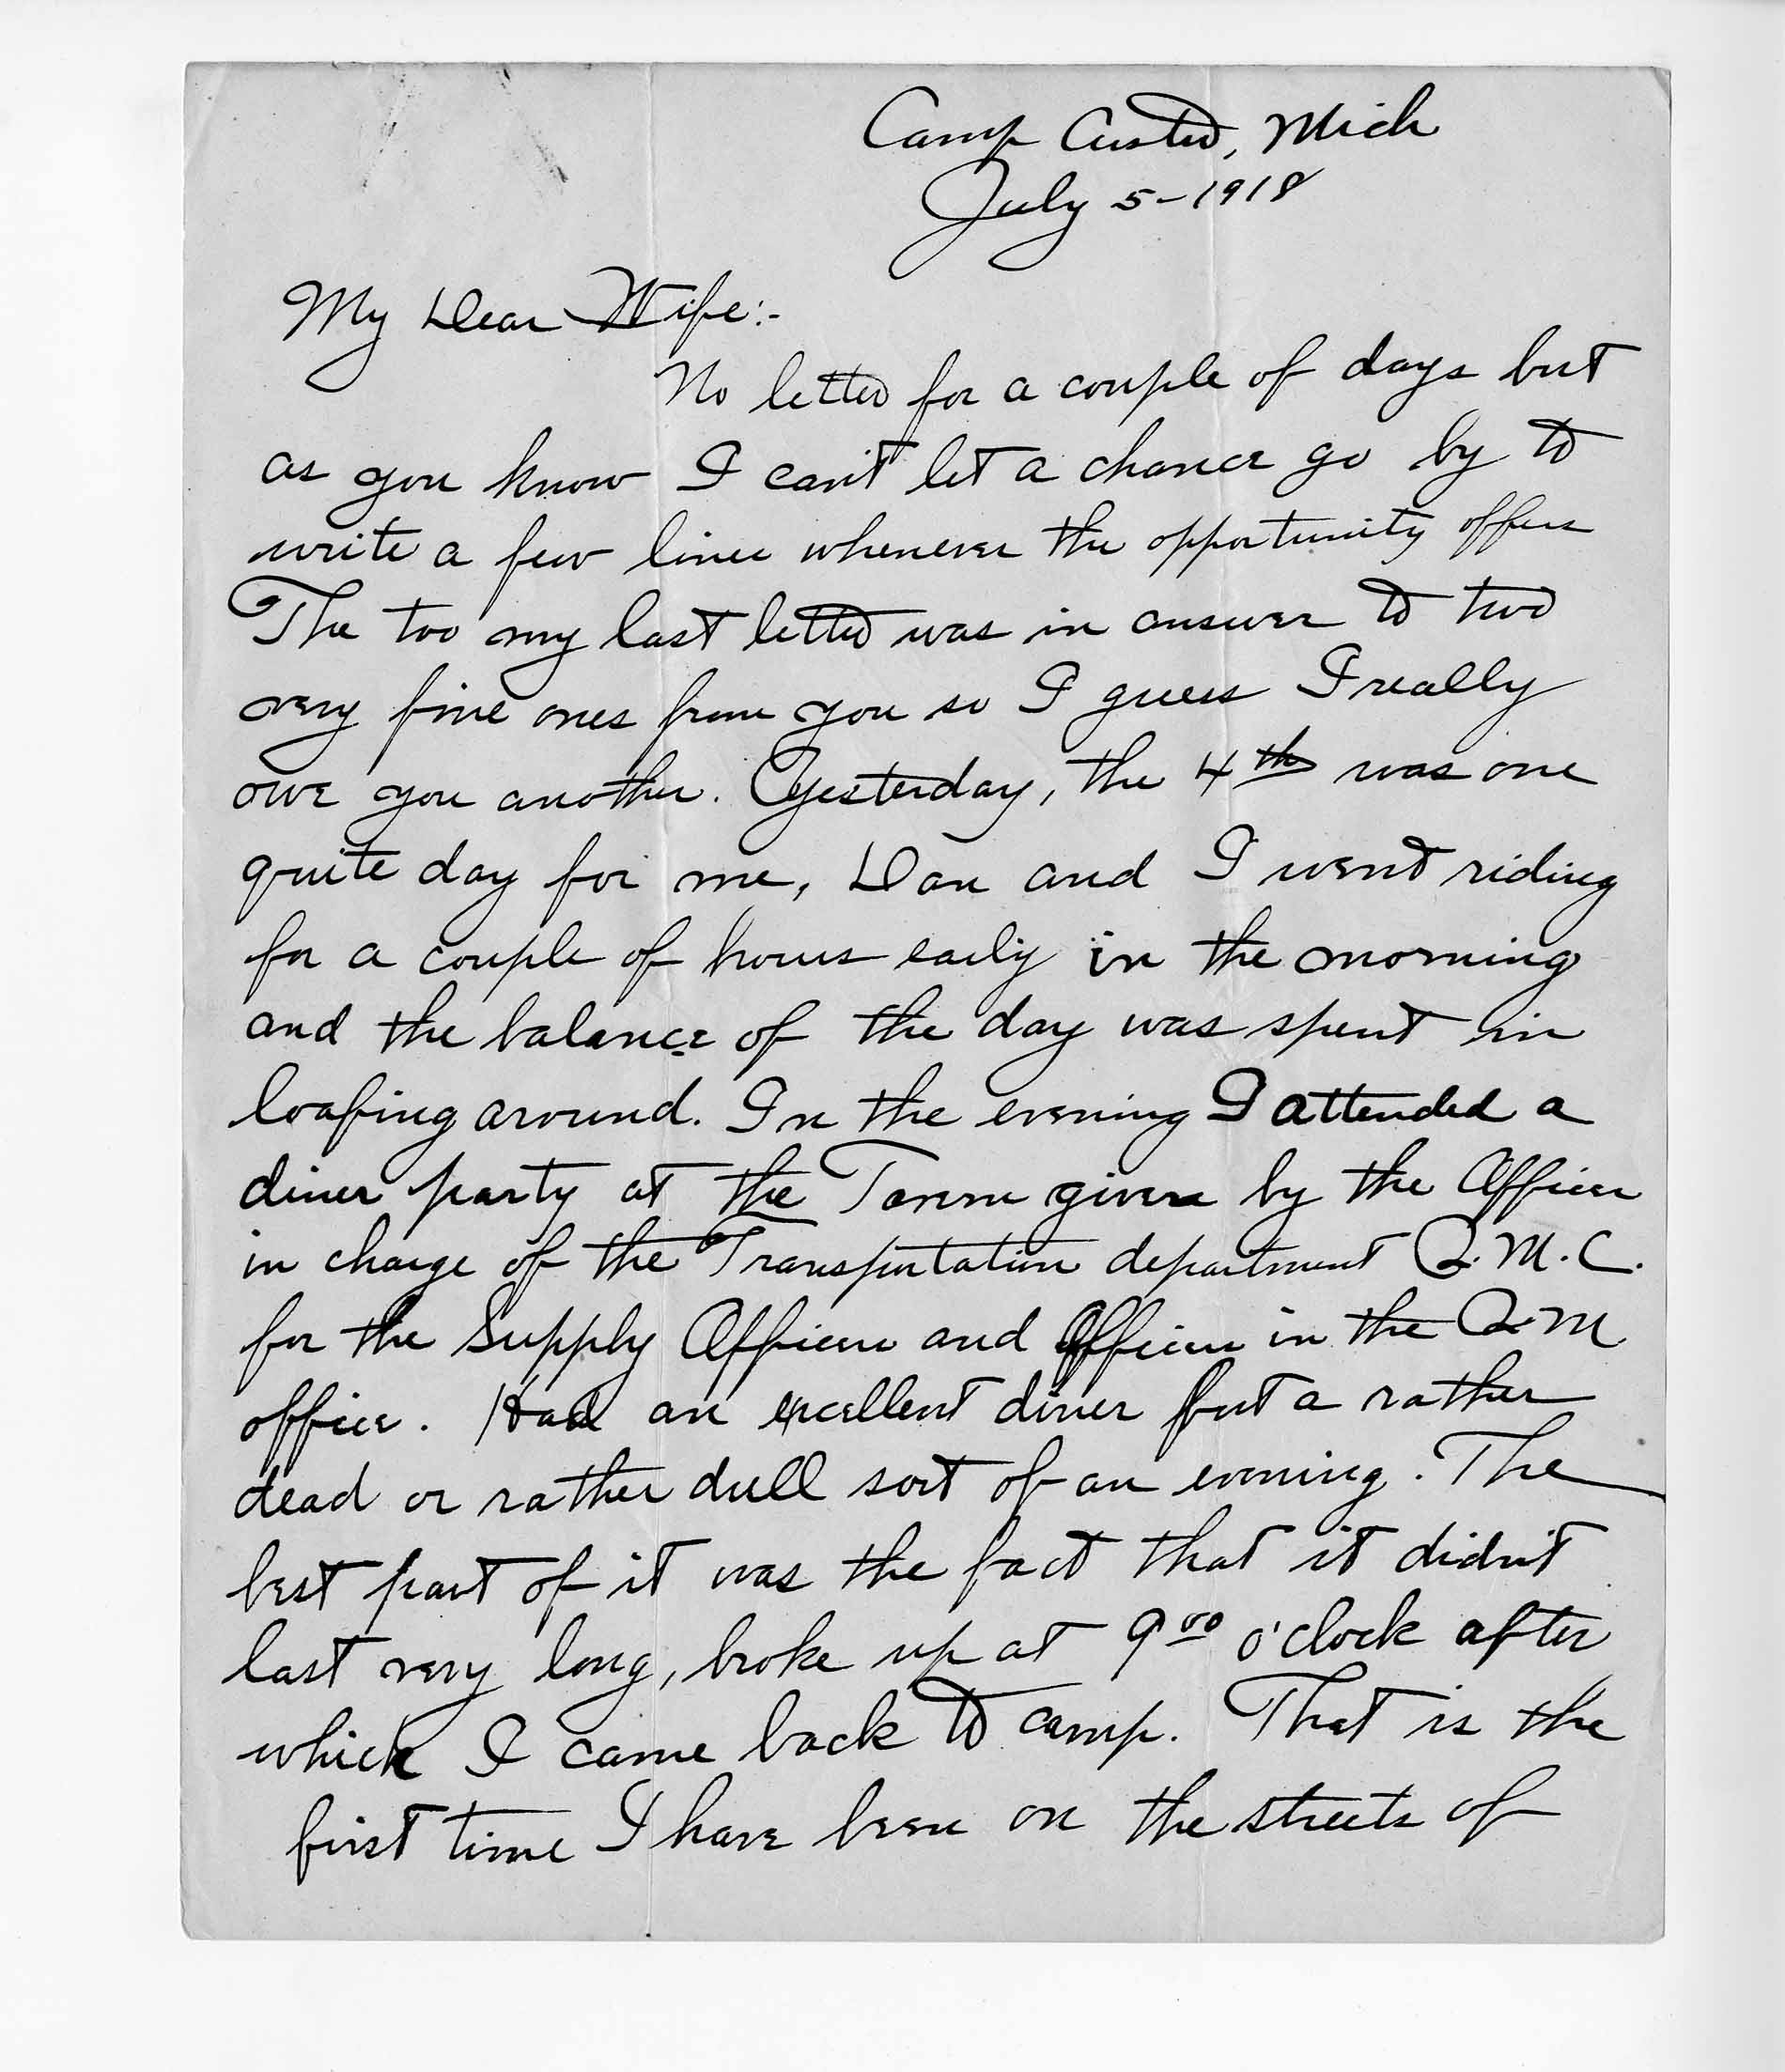 Camp Custer, Mich
July 5-1918
My Dear Wife:-
No letter for a couple of days but
as you know I can't let a chance go by to
write a few lines whenever the opportunity offers
The too my last letter was in answer to two
very fine ones from you so I guess I really
owe you another. Yesterday, the 4th was one
quite day for me, Dan and I went riding
for a couple of hours early in the morning
and the balance of the day was spent in
loafing around. In the evening I attended a
diner party at the Tavern given by the Officer
in charge of the Transportation department Q.M.C.
for the Supply Officers and Officers in the Q.M
office. Had an excellent diner but a rather
dead or rather dull sort of an evening. The
best part of it was the fact that it didn't
last very long, broke up at 900 o'clock after
which I came back to camp. That is the
first time I have been on the streets of